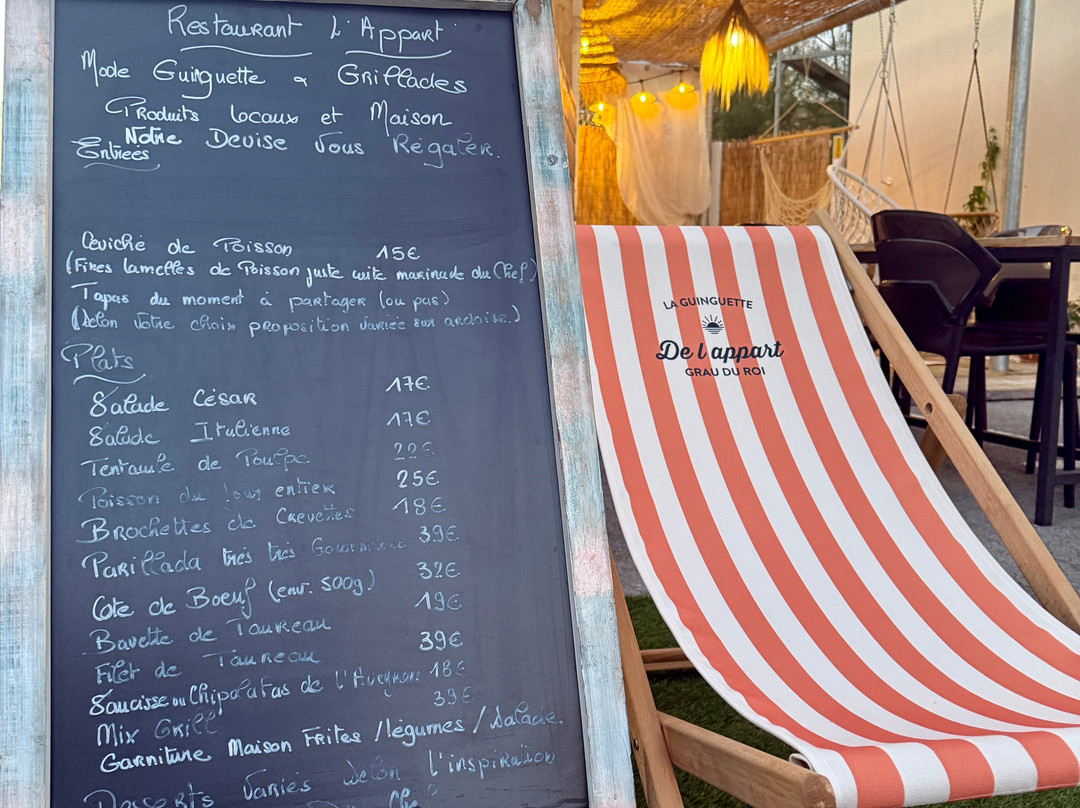 Restaurant L'Appart
Mode Guinguette & Grillades
Produits locaux et Maison
Notre Devise Vous Régaler.
Entrées
Ceviche de Poisson 15€
(Fines lamelles de Poisson juste cuite marinade du Chef)
Tapas du moment à partager (ou pas)
(Selon Votre choix proposition variée sur ardoise.)
Plats
Salade César 17€
Salade Italienne 17€
Tentacule de Poulpe 22€
Poisson du jour entier 25€
Brochettes de Crevettes 18€
Parillada très très Gourmande 39€
Côte de Boeuf (env. 500g) 32€
Bavette de Taureau 19€
Filet de Taureau 39€
Saucisse ou Chipolatas de l'Aveyron 18€
Mix Grill 39€
Garniture Maison Frites / légumes / Salade.
Desserts Variés Selon l'inspiration
LA GUINGUETTE
De l'appart
GRAU DU ROI